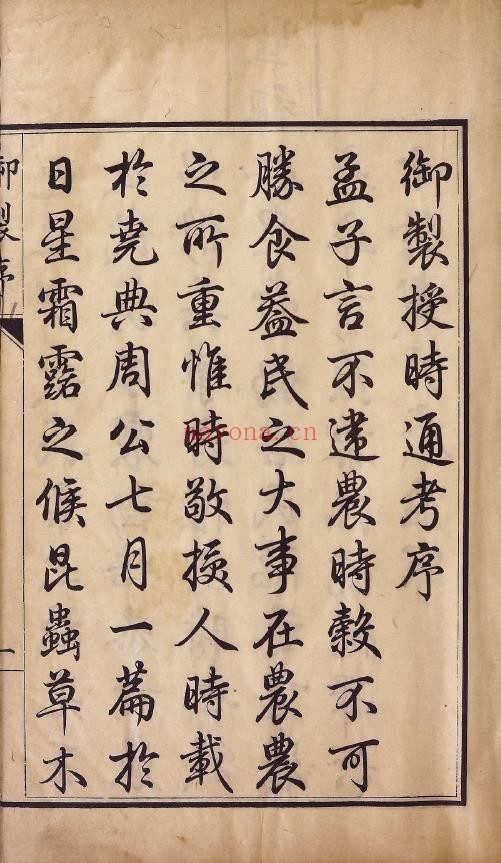 御製授時通考序
孟子言不違農時穀不可
勝食蓋民之大事在農農
之所重惟時敬授人時載
於堯典周公七月一篇於
日星霜露之候昆蟲草木
御製序
一
nayona.cn